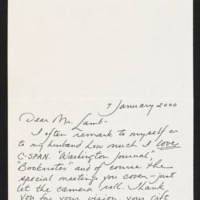 7 January 2000
Dear Mr. Lamb-
I often remark to myself & to
my husband how much I love
C-SPAN. "Washington Journal,"
"Booknotes" and of course the
special meetings you cover — just
let the camera roll. Thank
you for your vision, your